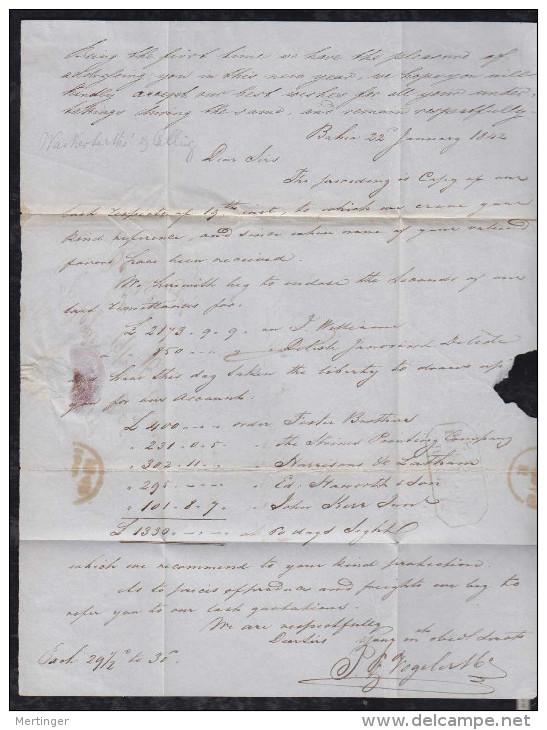 Being the first time we have the pleasure of
addressing you in this new year, we hope you will
kindly accept our best wishes for all your under-
takings during the same, and remain respectfully
Bahia 22d January 1842
Dear Sirs
The preceding is Copy of our
last respects of 13th inst, to which we crave your
kind reference, and since when none of your valued
favors have been received.
We herewith beg to enclose the Seconds of our
last remittances for:
£ 2173.9.9. on J. Williams
" 850 " Delisle Janvrin and Delisle
hear this day taken the liberty to draw up
you for our Account:
£ 400 order Foster Brothers
" 231.0.5 " the Printing Company
" 302.11 " Harrisons & Latham
" 295 " Ed. Haworth & Son
" 101.8.7. " John Kerr Junr
£ 1330 at 60 days Sight
which we recommend to your kind protection.
As to prices of produce and freights we beg to
refer you to our last quotations.
We are respectfully
Dear Sirs Your mt obedt Servts
Exch 29 1/2 to 30. Vogeler & Co
Mertinger
www.delcampe.net